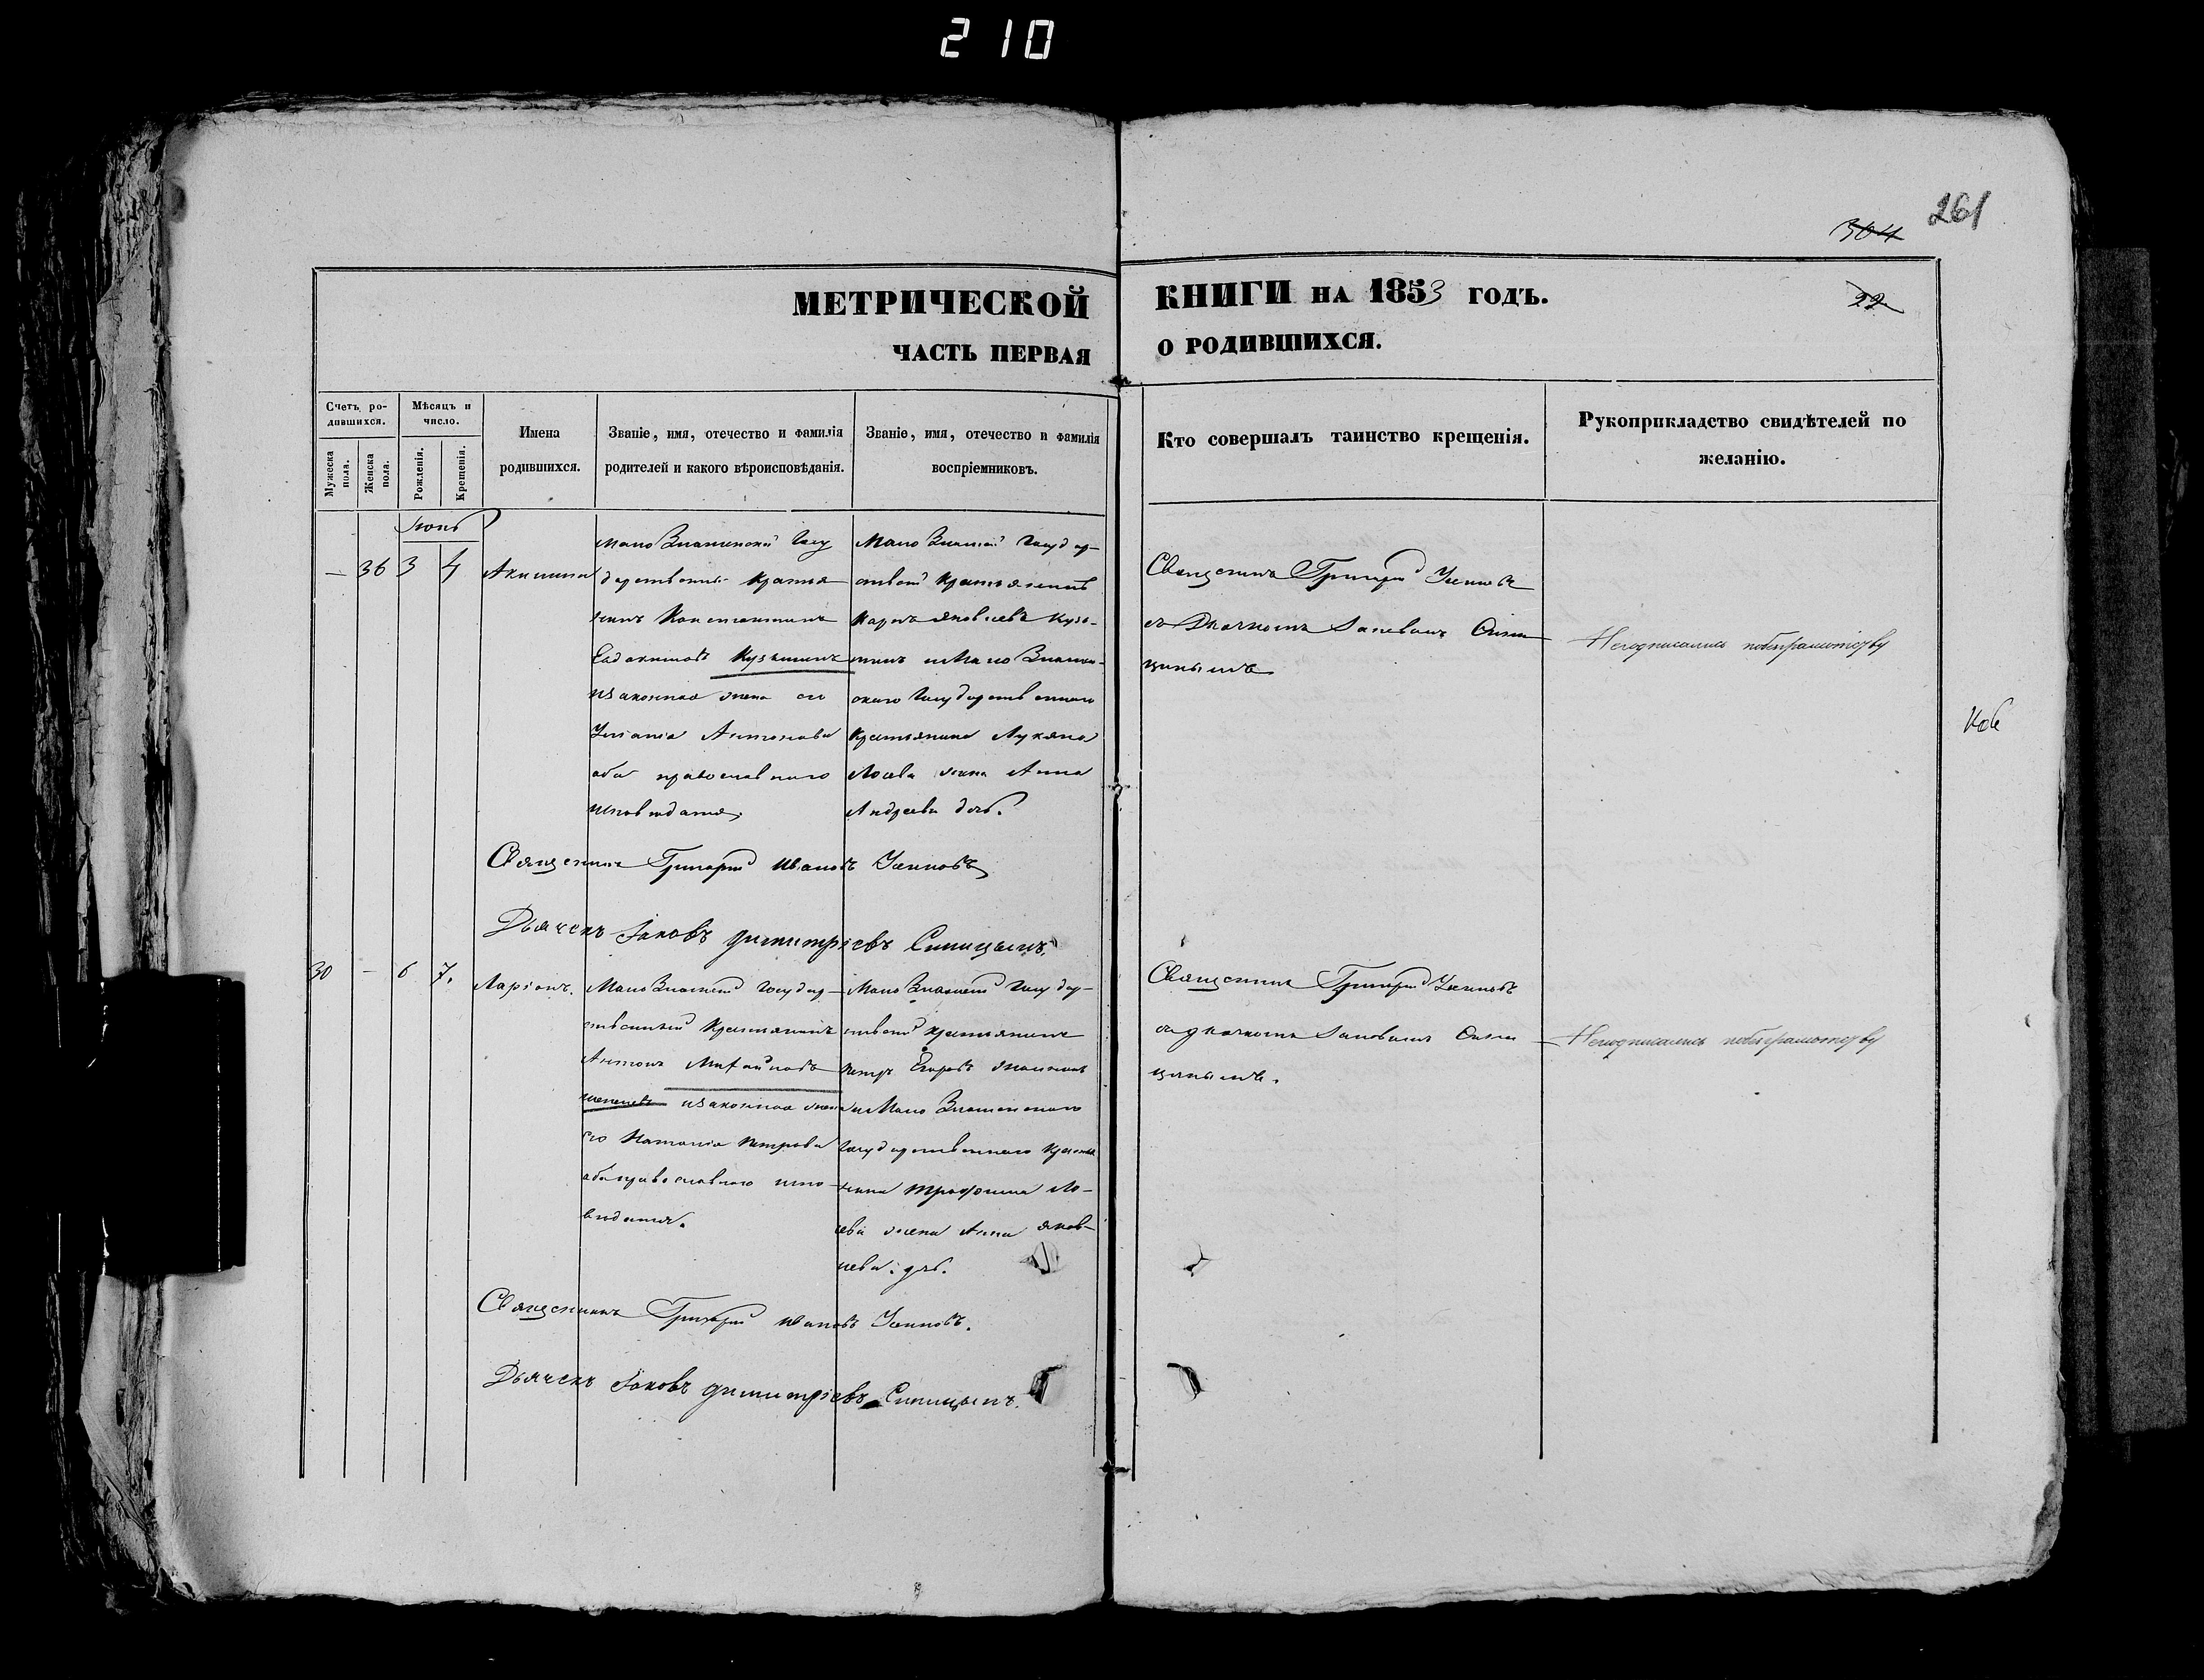 210
261
304
МЕТРИЧЕСКОЙ КНИГИ НА 1853 ГОДЪ.
22
ЧАСТЬ ПЕРВАЯ О РОДИВШИХСЯ.
Счетъ ро-
дившихся.
Мужеска пола.
Женска пола.
Мѣсяцъ и
число.
Рожденія.
Крещенія.
Имена
родившихся.
Званіе, имя, отечество и фамилія
родителей и какого вѣроисповѣданія.
Званіе, имя, отечество и фамилія
воспріемниковъ.
Кто совершалъ таинство крещенія.
Рукоприкладство свидѣтелей по
желанію.
Іюнь
— 36 3 4
Акилина
Мало Знаменской Госу
дарственный Крестья
нинъ Константинъ
Евдокимовъ Кузьминъ
изаконная жена его
Уліанія Антонова
оба православнаго
исповѣданія.
Мало Знамен Государ-
ствен Крестьянинъ
Карпъ Яковлевъ Кузь-
минъ и Мало Знамен-
скаго Государственнаго
Крестьянина Лукяна
Лосева жена Анна
Андреева дочь.
Священникъ Григорій
съ Дьячкомъ Іаковомъ Сини
цынымъ
Неподписались побезграмотству
Священникъ Григорій Ивановъ
Дьячекъ Іаковъ Димитріевъ Синицынъ.
30 — 6 7.
Ларіонъ.
Мало Знамен Государ-
ственный Крестьянинъ
Антонъ Михайловъ
изаконная жена
его Наталія Петрова
оба православнаго испо-
вѣданія.
Мало Знамен Государ-
ствен Крестьянинъ
Петръ Егоровъ
и Мало Знаменскаго
Государственнаго Крестья
нина Трофима Ло-
сева жена Анна Яков-
лева дчь.
Священникъ Григорій
съ дьячкомъ Іаковомъ Сини
цынымъ.
Неподписались побезграмотству
Священникъ Григорій Ивановъ
Дьячекъ Іаковъ Димитріевъ Синицынъ.